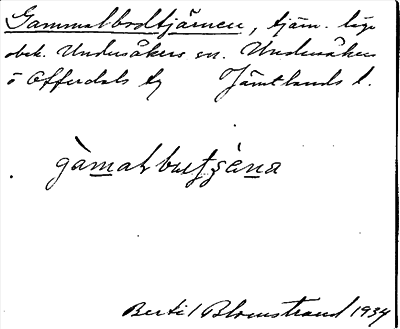 Gammalbodtjärnen, tjärn. läge
obek. Undersåkers sn. Undersåkers
o Offerdals tg Jämtlands l.
gàmaɫbuṯʂæ̀ṉa
Bertil Blomstrand 1934